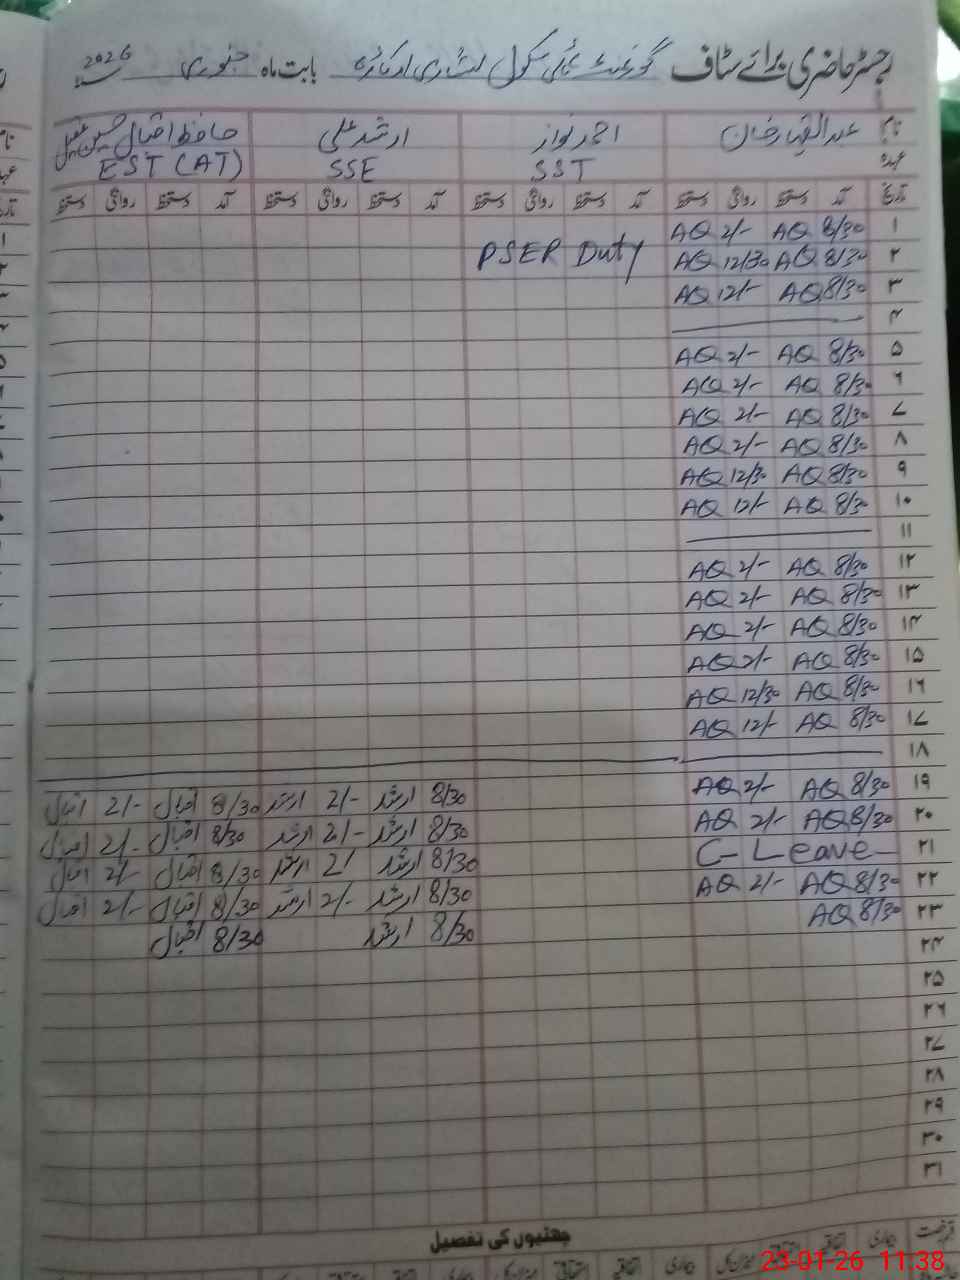 رجسٹر حاضری برائے سٹاف گورنمنٹ ہائی سکول بابت ماہ جنوری 2026
نام عبدالقہار خان احمد نواز ارشد علی حافظ اقبال حسین
عہدہ SST SSE EST (AT)
تاریخ آمد دستخط روانگی دستخط آمد دستخط روانگی دستخط آمد دستخط روانگی دستخط آمد دستخط روانگی دستخط
۱ 8/30 AQ 2/- AQ
PSER Duty
۲ 8/30 AQ 12/30 AQ
۳ 8/30 AQ 12/- AQ
۴
۵ 8/30 AQ 2/- AQ
۶ 8/30 AQ 2/- AQ
۷ 8/30 AQ 2/- AQ
۸ 8/30 AQ 2/- AQ
۹ 8/30 AQ 12/30 AQ
۱۰ 8/30 AQ 12/- AQ
۱۱
۱۲ 8/30 AQ 2/- AQ
۱۳ 8/30 AQ 2/- AQ
۱۴ 8/30 AQ 2/- AQ
۱۵ 8/30 AQ 2/- AQ
۱۶ 8/30 AQ 12/30 AQ
۱۷ 8/30 AQ 12/- AQ
۱۸
۱۹ 8/30 AQ 2/- AQ 8/30 ارشد 2/- ارشد 8/30 اقبال 2/- اقبال
۲۰ 8/30 AQ 2/- AQ 8/30 ارشد 2/- ارشد 8/30 اقبال 2/- اقبال
۲۱ C- Leave- 8/30 ارشد 2/ ارشد 8/30 اقبال 2/- اقبال
۲۲ 8/30 AQ 2/- AQ 8/30 ارشد 2/- ارشد 8/30 اقبال 2/- اقبال
۲۳ 8/30 AQ 8/30 ارشد 8/30 اقبال
۲۴
۲۵
۲۶
۲۷
۲۸
۲۹
۳۰
۳۱
چھٹیوں کی تفصیل
قسم رخصت بیماری اتفاقیہ استحقاقی میزان کل بیماری اتفاقیہ استحقاقی میزان کل بیماری اتفاقیہ
23-01-26 11:38